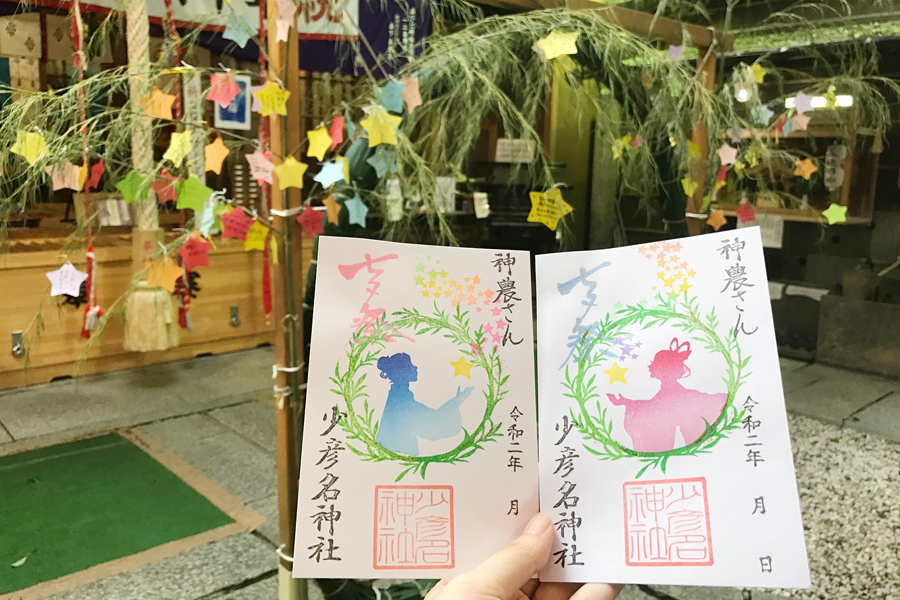 七夕祭
神農さん
令和二年 月
少彦名神社
少彦名
神社
七夕祭
神農さん
令和二年 月 日
少彦名神社
少彦名
神社